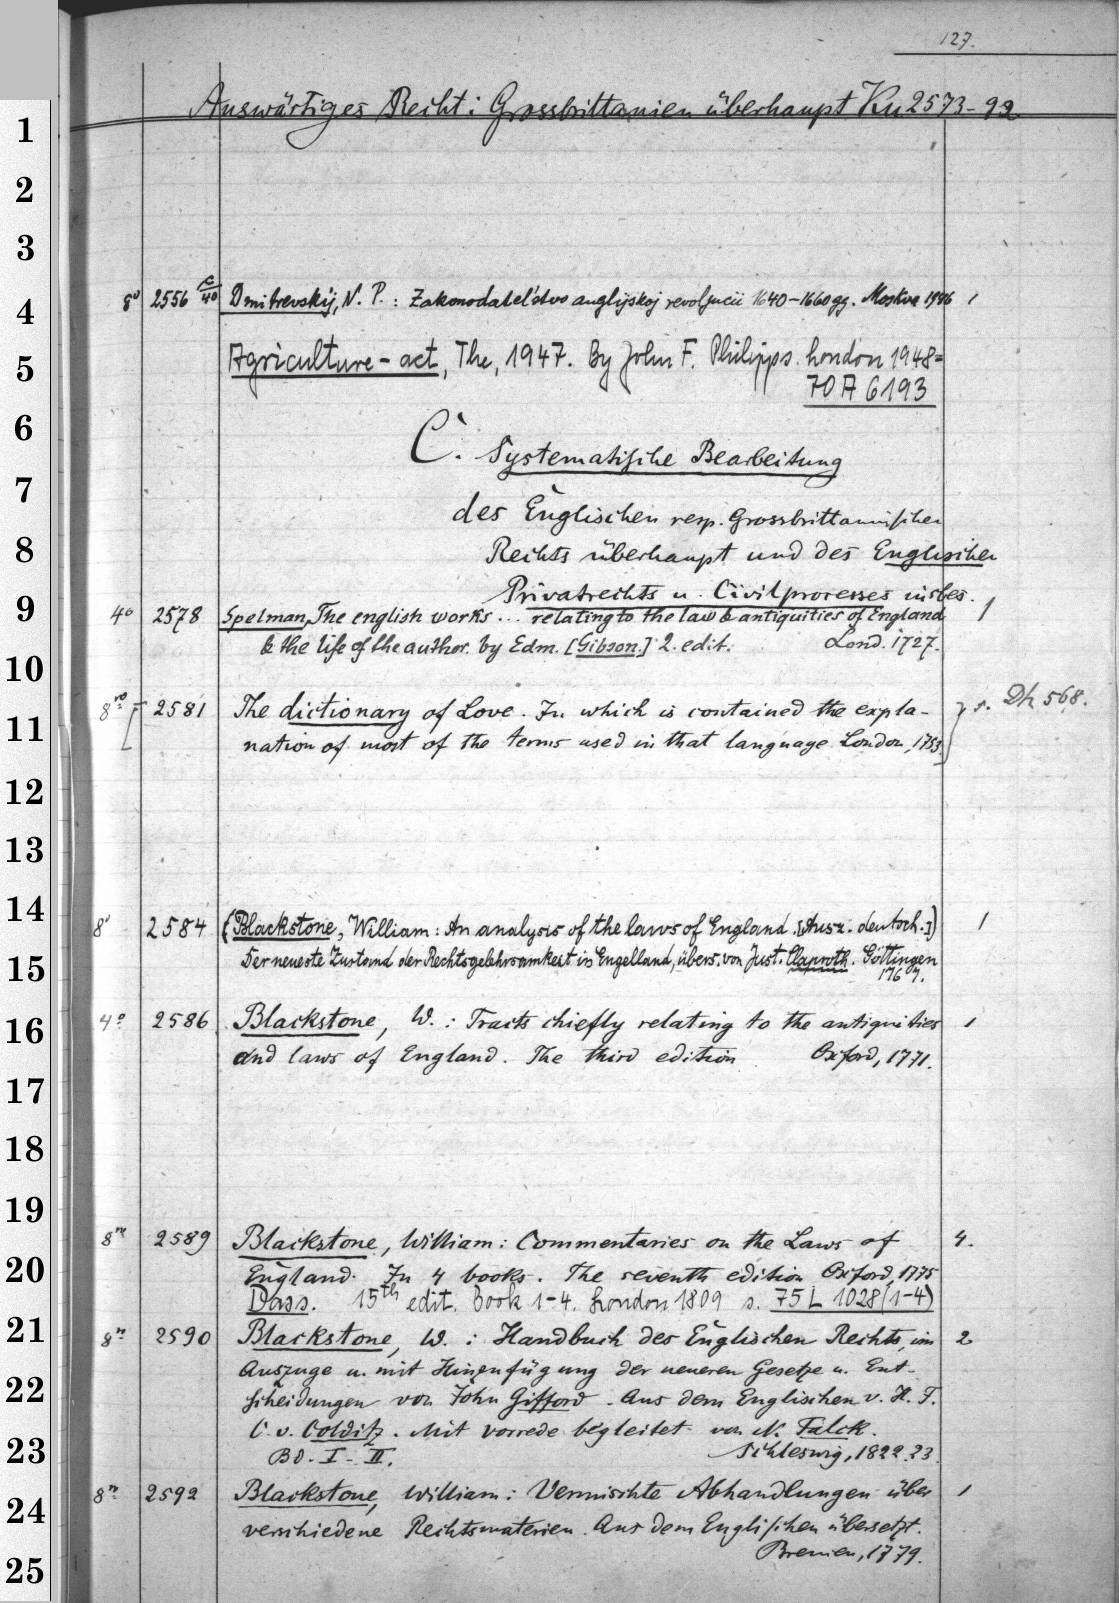 127.
Auswärtiges Recht: Grossbrittanien überhaupt Ku 2573-92
1
2
3
4
8° 2556 c/40 Dmitrevskij, N. P.: Zakonodatel'stvo anglijskoj revoljucii 1640-1660 gg. Moskva 1946 1
5
Agriculture-act, The, 1947. By John F. Philipps. London 1948=
70 A 6193
6
C. Systematische Bearbeitung
7
des Englischen resp. Grossbrittannischen
8
Rechts überhaupt und des Englischen
9
Privatrechts u. Civilprocesses insbes.
4° 2578 Spelman, The english works... relating to the law & antiquities of England 1
& the life of the author. by Edm. [Gibson.] 2. edit. Lond. 1727.
10
8vo 2581 The dictionary of Love. In which is contained the expla- } s. Dh 568.
11
nation of most of the terms used in that language London, 1753.
12
13
14
8° 2584 (Blackstone, William: An analysis of the laws of England. [Ausz. deutsch.]) 1
15
Der neueste Zustand der Rechtsgelehrsamkeit in Engelland, übers. von Just. Claproth. Göttingen
1767.
16
4° 2586 Blackstone, W.: Tracts chiefly relating to the antiquities 1
and laws of England. The third edition Oxford, 1771.
17
18
19
8vo 2589 Blackstone, William: Commentaries on the Laws of 4.
20
England. In 4 books. The seventh edition Oxford, 1775
Dass. 15th edit. Book 1-4. London 1809 s. 75 L 1028(1-4)
21
8vo 2590 Blackstone, W.: Handbuch des Englischen Rechts, im 2
Auszuge u. mit Hinzufügung der neueren Gesetze u. Ent-
22
scheidungen von John Gifford. Aus dem Englischen v. H. F.
C. v. Colditz. Mit vorrede begleitet von N. Falck.
23
Bd. I-II. Schleswig, 1822.23.
24
8vo 2592 Blackstone, William: Vermischte Abhandlungen über 1
verschiedene Rechtsmaterien. Aus dem Englischen übersetzt.
25
Bremen, 1779.